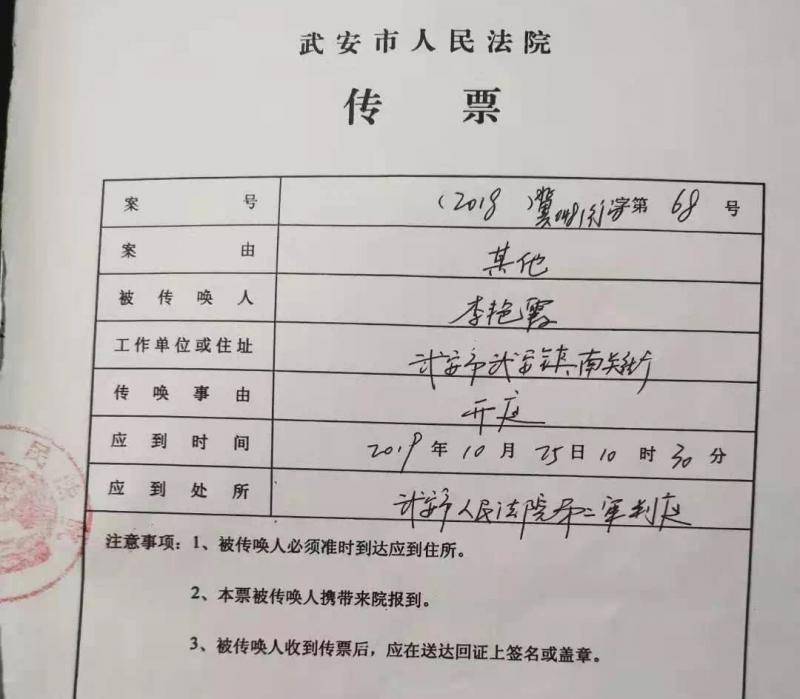 武安市人民法院
传 票
案 号 (2019)冀0481行字第 68 号
案 由 其他
被传唤人 李艳霞
工作单位或住址 武安市武安镇南关街
传唤事由 开庭
应到时间 2019年10月25日10时30分
应到处所 武安市人民法院第二审判庭
注意事项：1、被传唤人必须准时到达应到住所。
2、本票被传唤人携带来院报到。
3、被传唤人收到传票后，应在送达回证上签名或盖章。
民法院